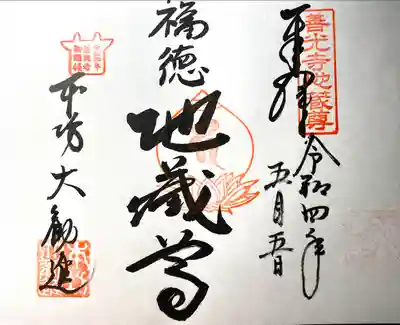 善光寺地蔵尊
奉拝
令和四年
五月五日
福徳
地蔵尊
本坊大勧進